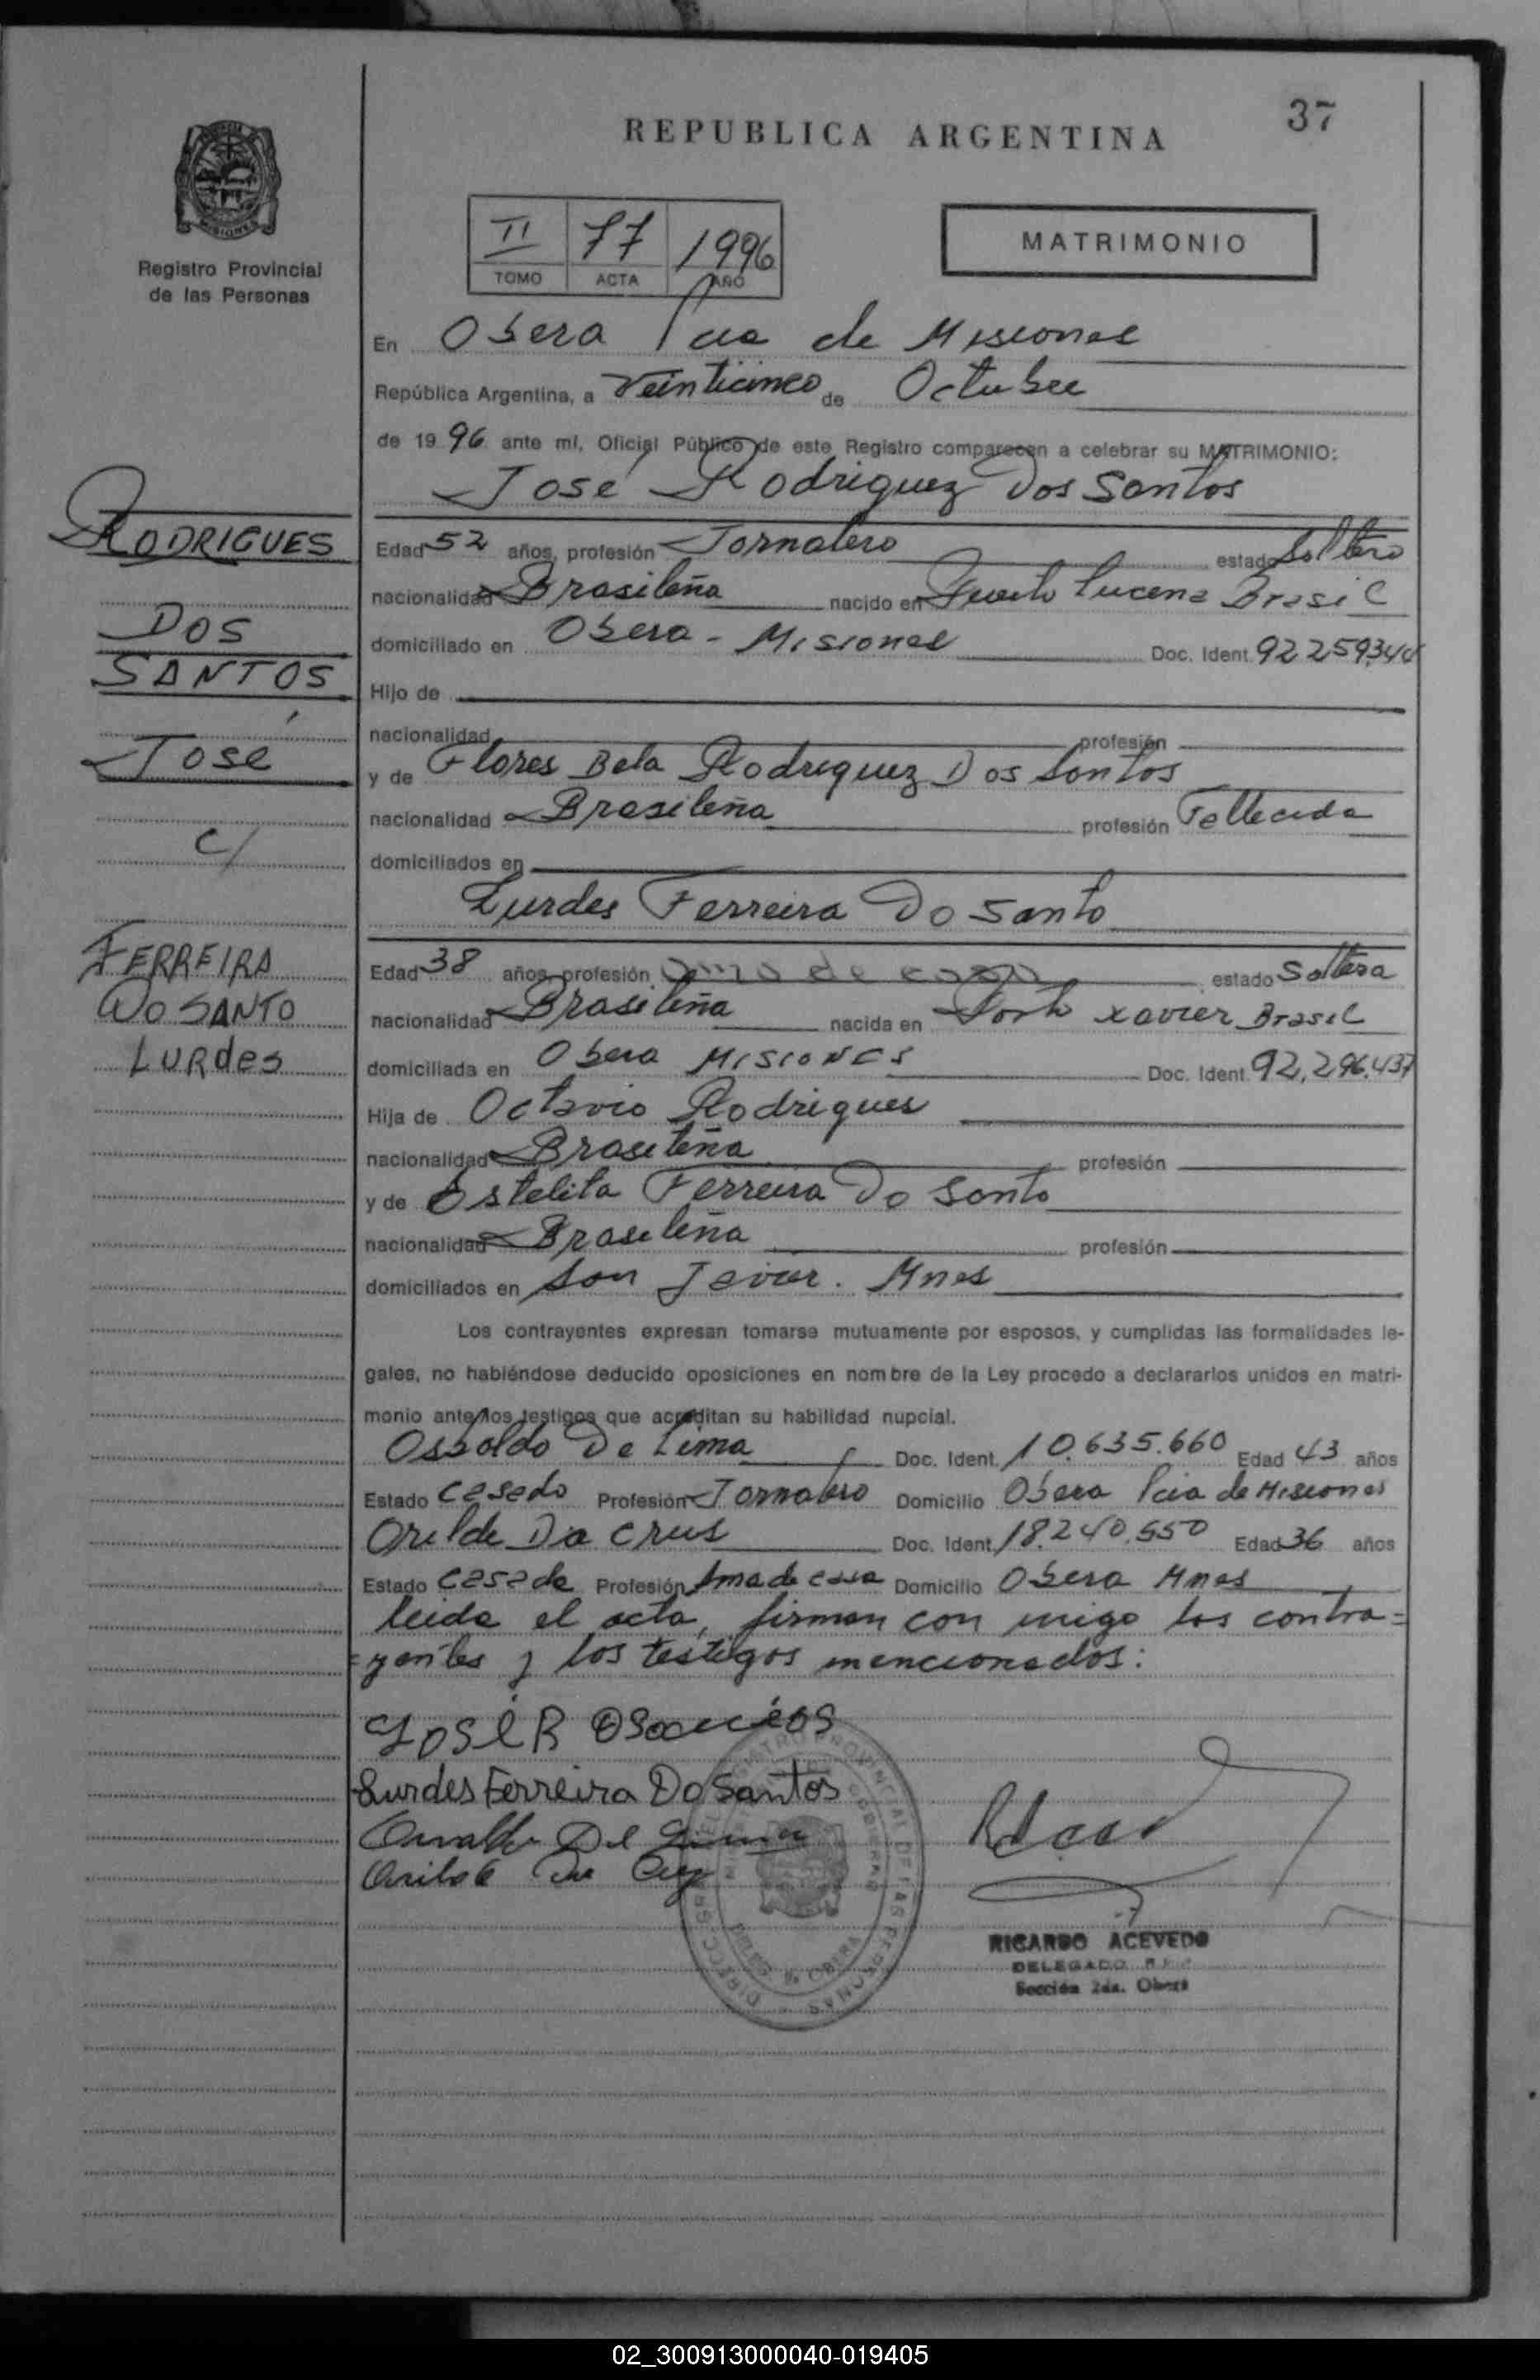 37
REPUBLICA ARGENTINA
MISIONES
Registro Provincial
de las Personas
II 77 1996
TOMO ACTA AÑO
MATRIMONIO
En Obera Pcia de Misiones
República Argentina, a Veinticinco de Octubre
de 1996 ante mí, Oficial Público de este Registro comparecen a celebrar su MATRIMONIO:
José Rodriguez Dos Santos
RODRIGUES
DOS
SANTOS
José
c/
FERREIRA
DO SANTO
LURdes
Edad 52 años, profesión Jornalero estado Soltero
nacionalidad Brasileña nacido en Puerto Lucena Brasil
domiciliado en Obera - Misiones Doc. Ident. 92259344
Hijo de
nacionalidad profesión
y de Flores Bela Rodriguez Dos Santos
nacionalidad Brasileña profesión Fallecida
domiciliados en
Lurdes Ferreira Do Santo
Edad 38 años, profesión ama de casa estado Soltera
nacionalidad Brasileña nacida en Porto Xavier Brasil
domiciliada en Obera MISIONES Doc. Ident. 92.296.437
Hija de Octavio Rodrigues
nacionalidad Brasileña profesión
y de Estelita Ferreira Do Santo
nacionalidad Brasileña profesión
domiciliados en San Javier. Mnes
Los contrayentes expresan tomarse mutuamente por esposos, y cumplidas las formalidades le-
gales, no habiéndose deducido oposiciones en nombre de la Ley procedo a declararlos unidos en matri-
monio ante los testigos que acreditan su habilidad nupcial.
Osvaldo De Lima Doc. Ident. 10.635.660 Edad 43 años
Estado Casado Profesión Jornalero Domicilio Obera Pcia de Misiones
Orilde Da Crus Doc. Ident. 18.240.550 Edad 36 años
Estado Casada Profesión Ama de casa Domicilio Obera Mnes
leida el acta, firman con migo los contra=
=yentes y los testigos mencionados:
José R
Lurdes Ferreira Do Santos
RICARDO ACEVEDO
DELEGADO
Sección 2da. Oberá
02_300913000040-019405